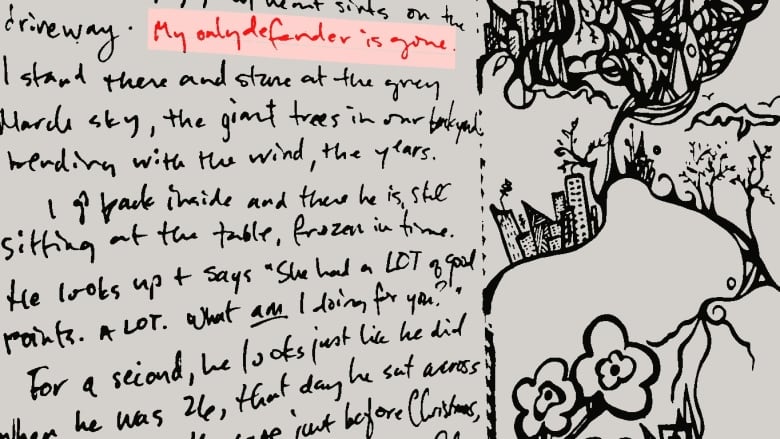 heart sinks on the
driveway. My only defender is gone.
I stand there and stare at the grey
March sky, the giant trees in our backyard
bending with the wind, the years.
I go back inside and there he is, still
sitting at the table, frozen in time.
He looks up + says "She had a LOT of good
points. A LOT. What am I doing for you?"
For a second, he looks just like he did
when he was 26, that day he sat across
just before Christmas,